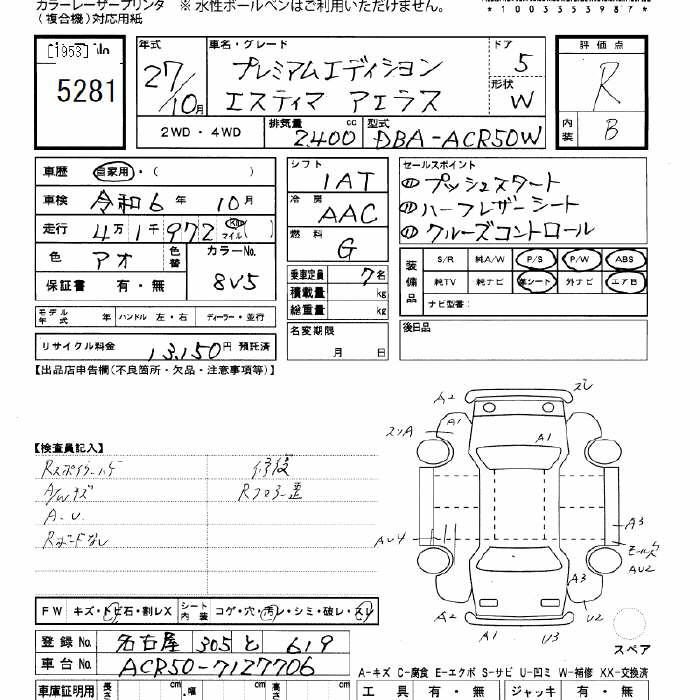 カラーレーザープリンタ ※ 水性ボールペンはご利用いただけません。
(複合機)対応用紙
*1003353987*
[1953]
5281
年式 27/10月
車名・グレード プレミアムエディション
エスティマ アエラス
ドア 5
形状 W
評価点 R
内装 B
2WD・4WD
排気量 2400 cc
型式 DBA-ACR50W
車歴 自家用・( )
車検 令和6年 10月
走行 4万1千972 km マイル ( )
色 アオ 色替
カラーNo. 8V5
保証書 有・無
シフト 1AT
冷房 AAC
燃料 G
乗車定員 7名
積載量 kg
総重量 kg
セールスポイント
① プッシュスタート
② ハーフレザーシート
③ クルーズコントロール
装備品
S/R 純A/W P/S P/W ABS
純TV 純ナビ 革シート 外ナビ エアB
ナビ型番:
モデル年式 年 ハンドル 左・右 ディーラー・並行
名変期限 月 日
後日品
リサイクル料金 13,150円 預託済
【出品店申告欄(不良箇所・欠品・注意事項等)】
【検査員記入】
Rスポイラーハゲ 修復
A/Wキズ Rフロアー歪
A.U.
Rボードなし
A2
スレ
A1
スソA
A1
AU4
A3
モールキズ
AU2
A3
A2
U2
A1
U3
スペア
FW キズ・トビ石・割レX シート内装 コゲ・穴・汚レ・シミ・破レ・スレ
登録No. 名古屋 305 と 619
車台No. ACR50-7127706
A-キズ C-腐食 E-エクボ S-サビ U-凹ミ W-補修 XX-交換済
車庫証明用 長さ cm ・幅 cm 高さ cm
工具 有・無 ジャッキ 有・無